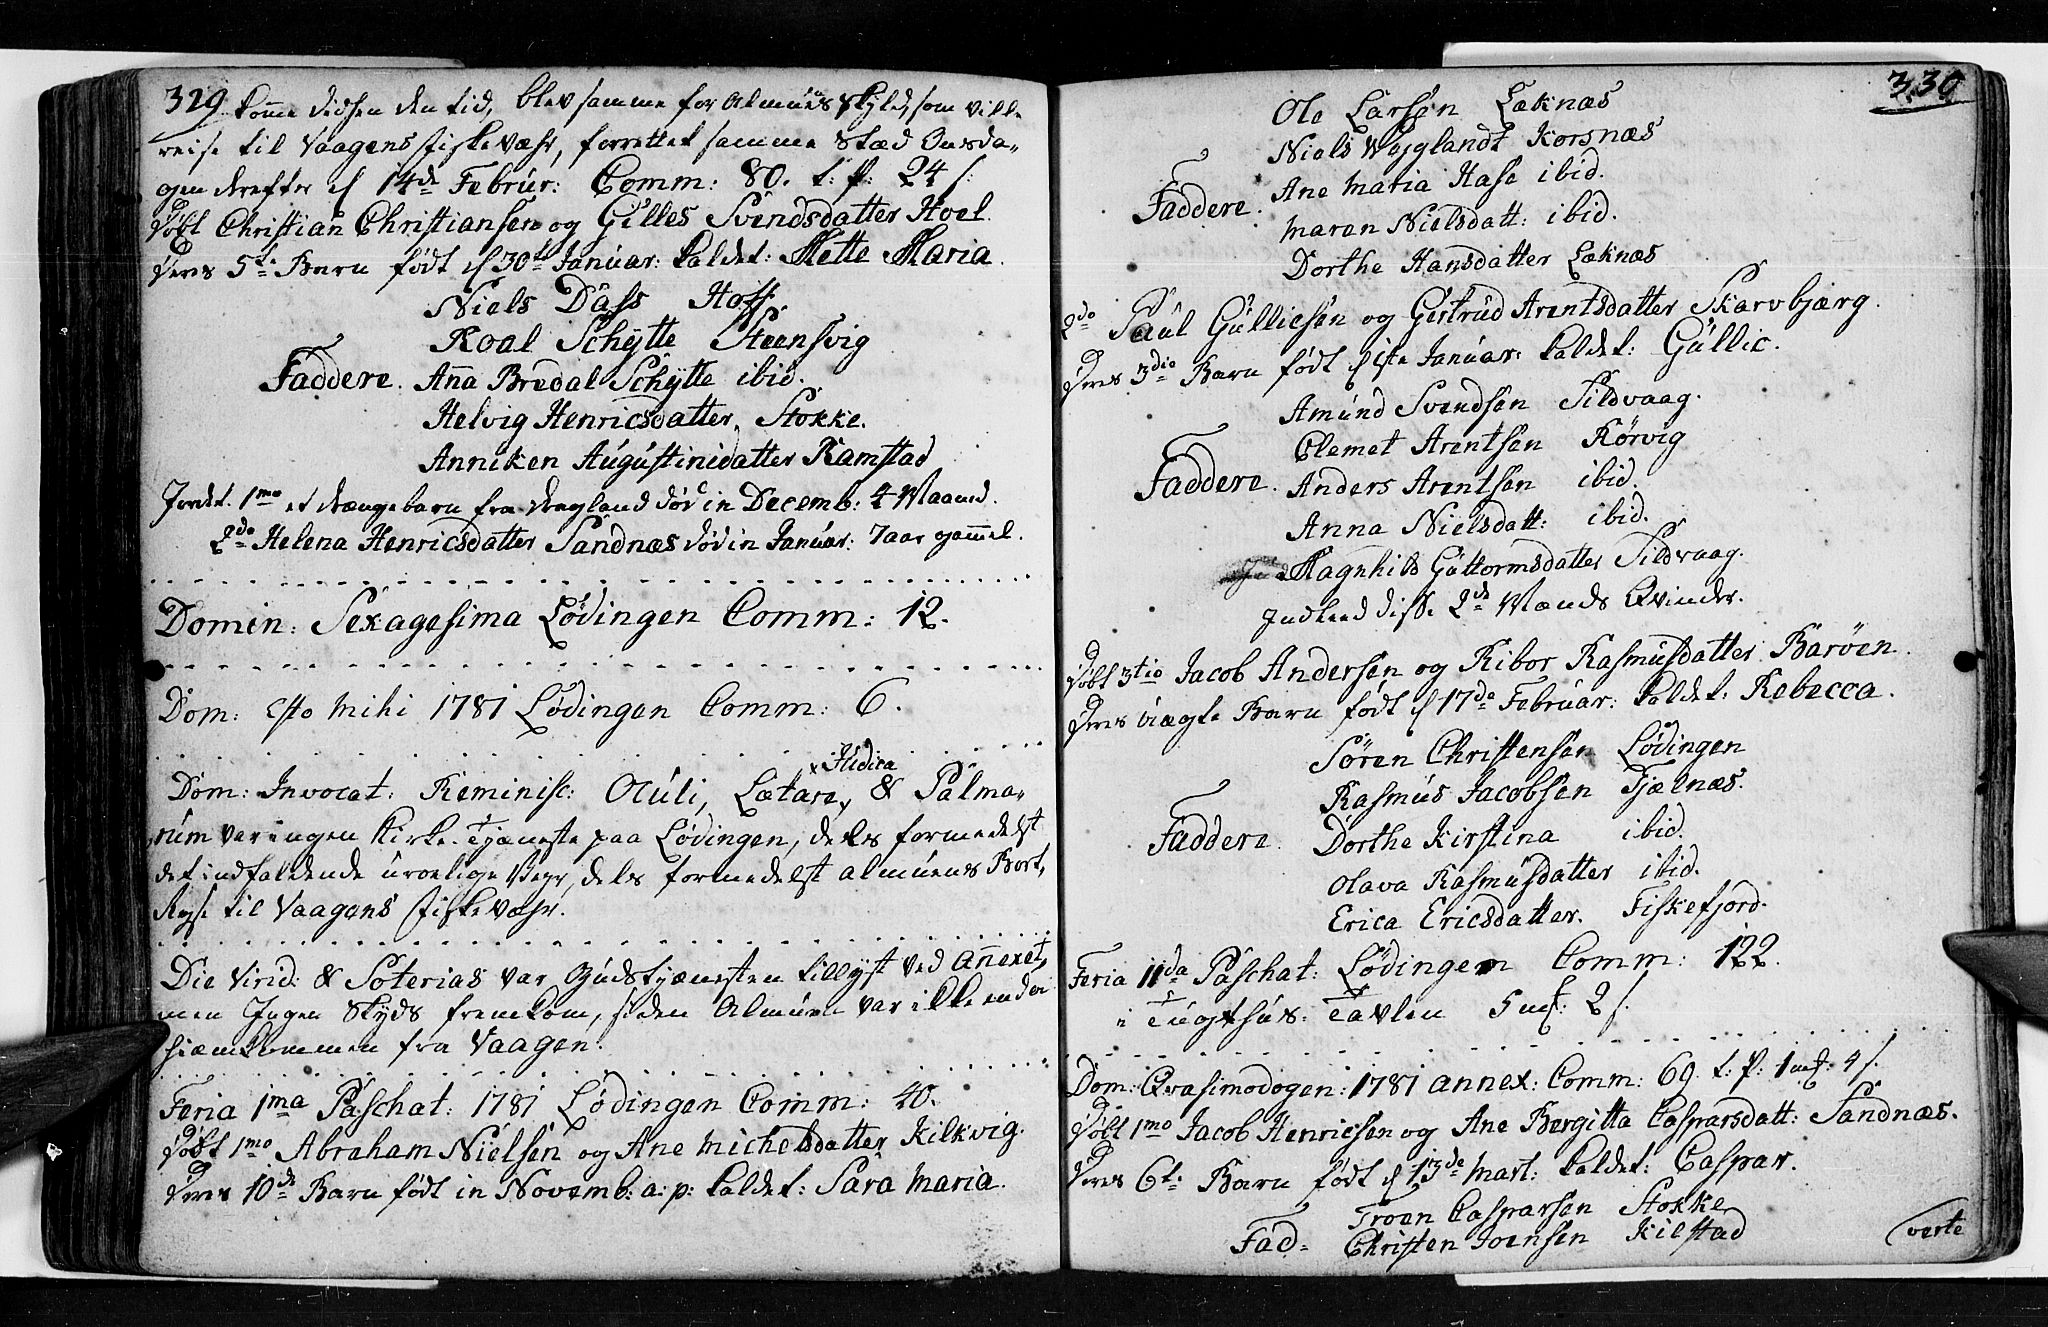 329. komme didhen den tid, blev samme for Almuens Skyld, som ville
reise til Vaagens Fiskevæhr, forrettet samme Stæd Onsda-
gen derefter d 14de Februr: Comm: 80. t: p: 24 s:
Døbt Christian Christiansen og Gilles Svendsdatter Hoel.
Deres 5te Barn født d 30te Januar: kaldet: Mette Maria.
Niels Dass Hoff.
Roal Schytte Steensvig
Faddere. Anna Bredal Schytte ibid.
Helvig Henricsdatter, Stokke.
Anniken Augustinidatter Ramstad
Jordet. 1mo et drængebarn fra Dragland død in Decemb: 4 Maaned.
2do Helena Henricsdatter Sandnæs død in Januar: 7 aar gammel.
Domin: Sexagesima Lødingen Comm: 12.
Dom: Esto mihi 1781 Lødingen Comm: 6.
x Judica
Dom: Invocat: Reminisc: Oculi, Lætare, & Palma-
rum var ingen Kirke-Tjæneste paa Lødingen, deels formedelst
det indfaldende uroelige Veyr, dels formedelst almuens Bort-
Reyse til Vaagens Fiskevæhr.
Die Virid: & Soterias var Gudstjænesten tillyst ved Annexet,
men Ingen Skyds fremkom, siden Almuen var ikke endnu
hiemkommen fra Vaagen.
Feria 1ma Paschat: 1781 Lødingen Comm: 40.
Døbt 1mo Abraham Nielsen og Ane Michelsdatter Kilkvig.
Deres 10de Barn født in Novemb: a: p: kaldet: Sara Maria.
330
Ole Larsen Læknæs
Niels Wejglandt Korsnæs
Faddere. Ane Maria Hase ibid.
Maren Nielsdatt: ibid.
Dorthe Hansdatter Læknæs
2do Paul Gulliesen og Gertrud Arentsdatter Skarvbjærg.
Deres 3die Barn født d 1ste Januar: kaldet: Gullic.
Amund Svendsen Sildvaag.
Clemet Arentsen Rørvig
Faddere. Anders Arentsen ibid.
Anna Nielsdatt: ibid.
Magnhild Guttormsdatter Sildvaag.
Indleed disse 2de Mænds Qvinder.
Døbt 3tio Jacob Andersen og Ribor Rasmusdatter Barøen.
Deres ægte Barn født d 17de Februar: kaldet: Rebecca.
Søren Christensen Lødingen
Rasmus Jacobsen Fjælnæs.
Faddere. Dorthe Kirstina ibid.
Olava Rasmusdatter ibid.
Erica Ericsdatter. Fiskefjord.
Feria IIda Paschat: Lødingen Comm: 122.
i Tugthus-Tavlen 5 mk: 2 s.
Dom: Qvasimodogen: 1781 annex: Comm: 69. t: p: 1 mk: 4 s.
Døbt 1mo Jacob Henricsen og Ane Bergitta Casparsdatt: Sandnæs.
Deres 6te Barn født d 13de Mart: kaldet: Caspar.
Troen Casparsen Stokke
Fad= Christen Joensen Kilstad
verte